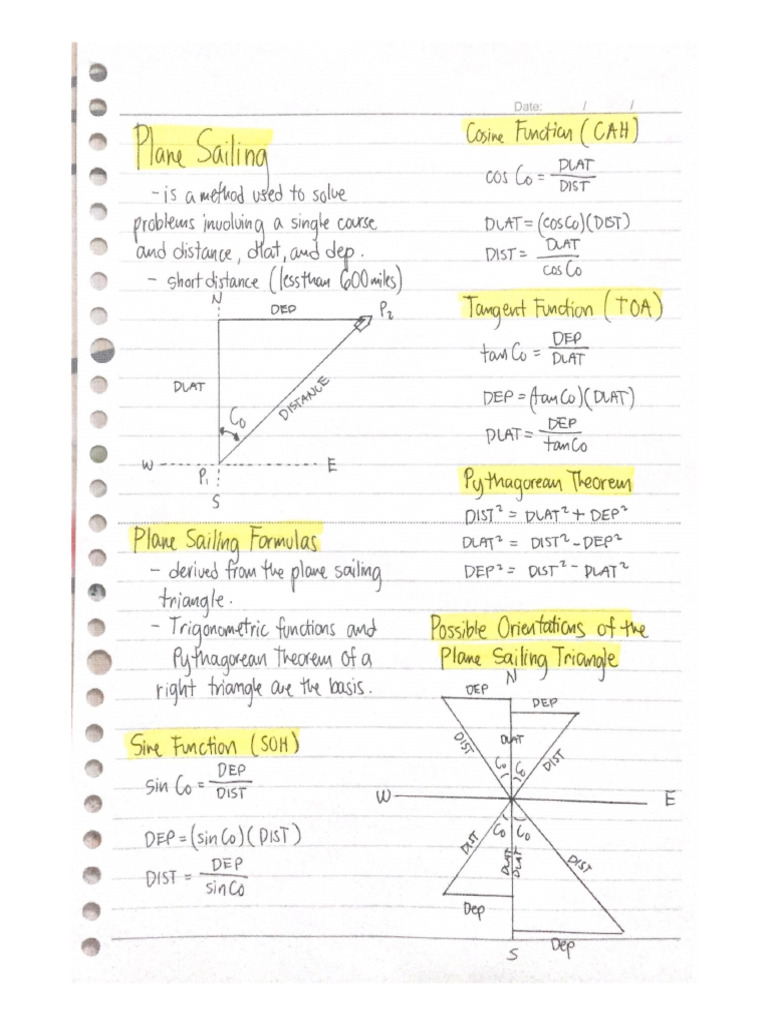 Date: / /
Plane Sailing
- is a method used to solve
problems involving a single course
and distance, dlat, and dep.
- short distance (less than 600 miles)
N
DEP
P2
DLAT
Co
DISTANCE
W
P1
E
S
Plane Sailing Formulas
- derived from the plane sailing
triangle.
- Trigonometric functions and
Pythagorean Theorem of a
right triangle are the basis.
Sine Function (SOH)
sin Co = DEP / DIST
DEP = (sin Co)(DIST)
DIST = DEP / sin Co
Cosine Function (CAH)
cos Co = DLAT / DIST
DLAT = (cos Co)(DIST)
DIST = DLAT / cos Co
Tangent Function (TOA)
tan Co = DEP / DLAT
DEP = (tan Co)(DLAT)
DLAT = DEP / tan Co
Pythagorean Theorem
DIST² = DLAT² + DEP²
DLAT² = DIST² - DEP²
DEP² = DIST² - DLAT²
Possible Orientations of the
Plane Sailing Triangle
N
DEP
DEP
DIST
DLAT
DIST
Co
Co
W
E
Co
Co
DIST
DLAT
DLAT
DIST
Dep
Dep
S